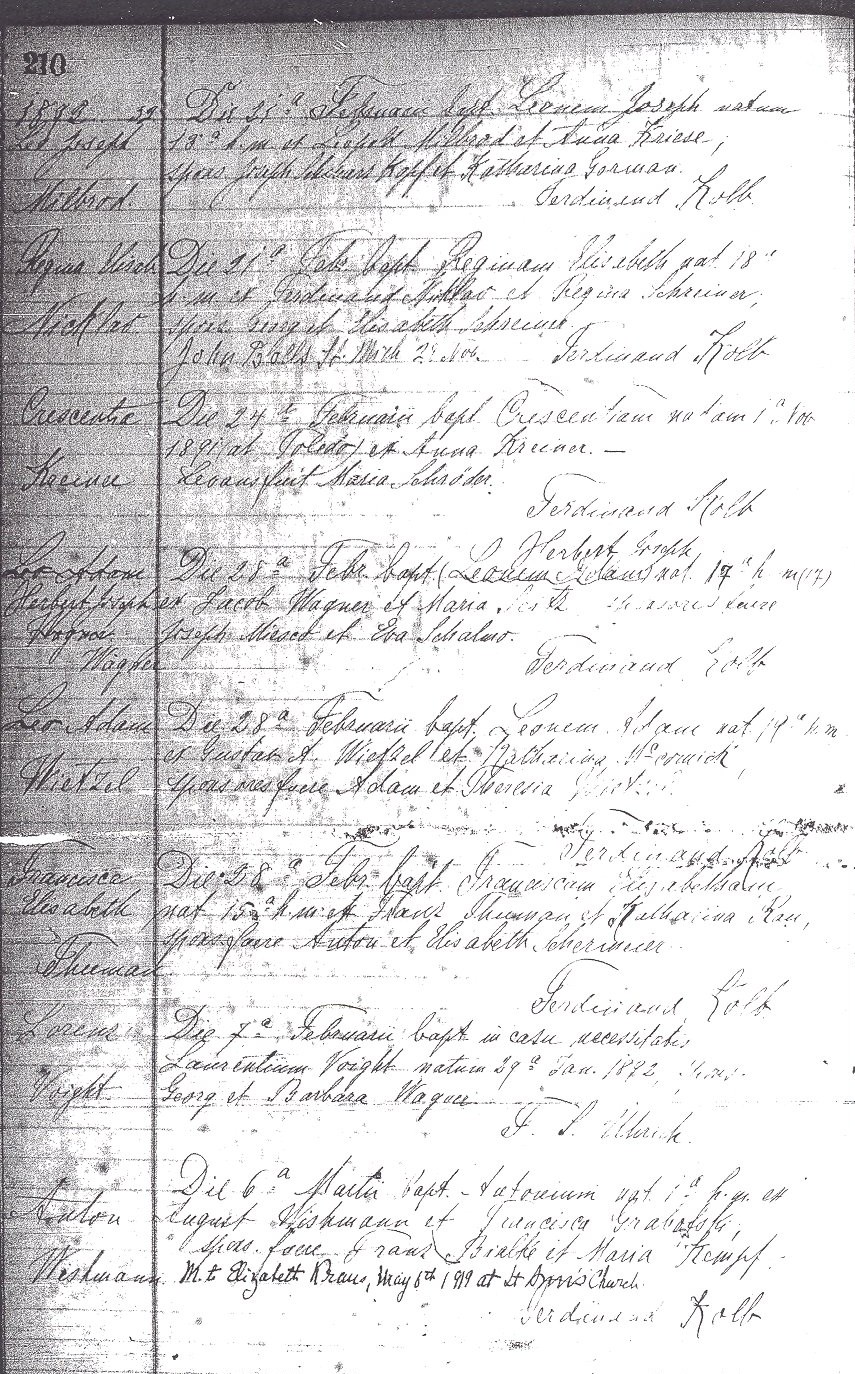 210
1892 32 Die 21ª Februarii bapt. Leonem Joseph natum
Leo Joseph 18ª h. m. et Leopolt Milbrod et Anna Kriese,
spons Joseph Kopf et Katharina Gorman.
Milbrod. Ferdinand Kolb
Regina Elisab Die 21ª Febr. bapt. Reginam Elisabeth nat. 18ª
h. m. ex Ferdinand Nicklao et Regina Schreiner,
Nicklao spons. Georg et Elisabeth Schreiner
John Bolls St. Mich 29 Nov. Ferdinand Kolb
Crescentia Die 24ª Februarii bapt. Crescentiam natam 1ª Nov
1891 at Toledo) et Anna Kreiner. —
Kreiner Levans fuit Maria Schröder.
Ferdinand Kolb
Herbert Joseph
Leo Adam Die 28ª Febr. bapt. (Leonem Adam) nat. 17ª h. m (17)
Herbert Joseph ex Jacob Wagner et Maria sponsores fuere
Wagner Joseph et Eva Schalmo.
Wagner Ferdinand Kolb
Leo Adam Die 28ª Februarii bapt. Leonem Adam nat. 19ª h. m.
ex Gustav A. Wietzel et Katharina McCormick,
Wietzel sponsores fuere Adam et Theresia
Ferdinand Kolb
Francisca Die 28ª Febr. bapt. Franciscam Elizabetham
Elisabeth nat. 15ª h. m. et Franz Thuman et Katharina Rau,
spons. fuere Anton et Elisabeth Schermeier.
Thuman
Ferdinand Kolb
Lorenz Die 7ª Februarii bapt. in casu necessitatis
Laurentium Voight natum 29ª Jan. 1892, spons.
Voight Georg et Barbara Wagner
F. S. Ulrich.
Die 6ª Martii bapt. Antonium nat. 1ª h. m. ex
Anton August Wishmann et Francisca Grabofski,
spons. fuere Franz Bialke et Maria Kempf.
Weshmann M. to Elizabeth Kraus, May 6th 1919 at St Ann's Church
Ferdinand Kolb